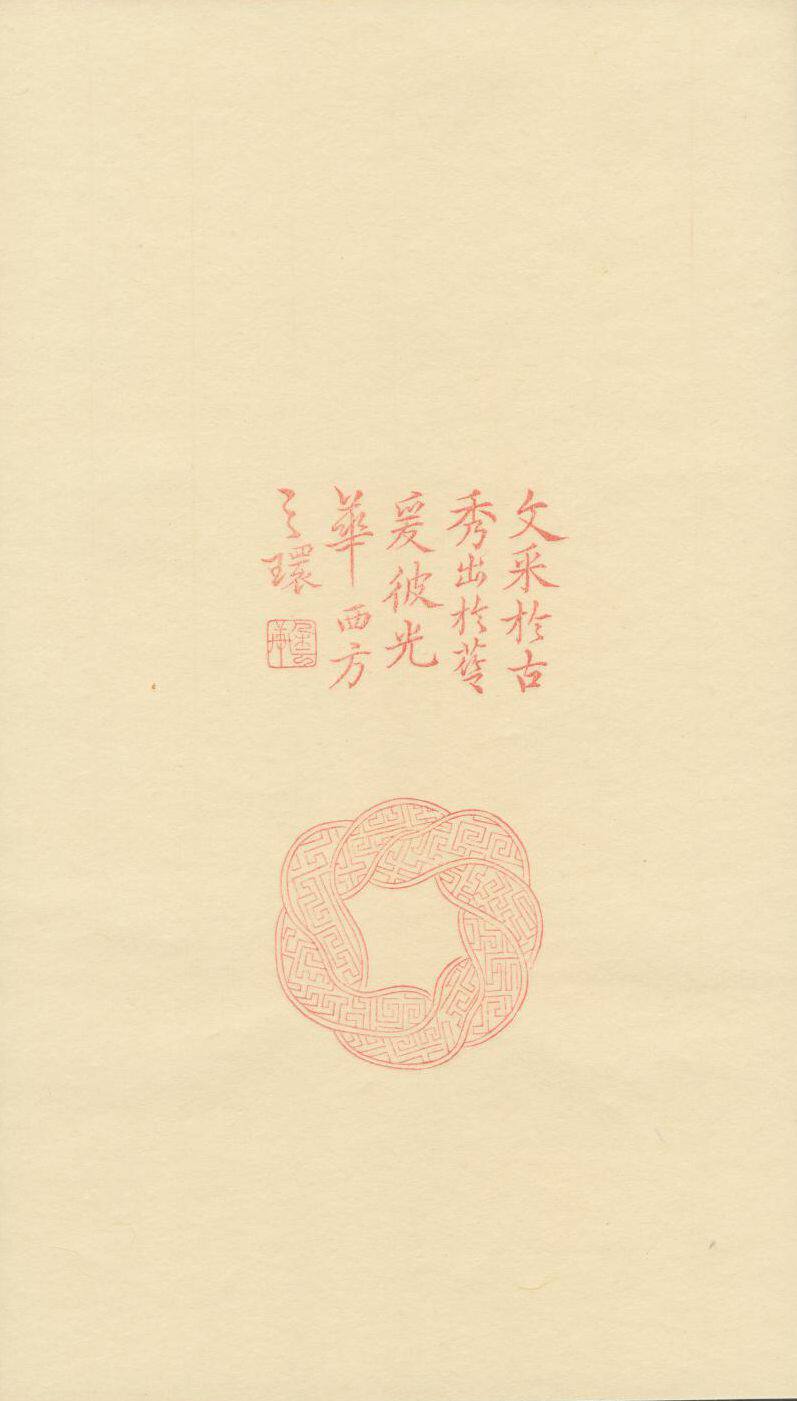 文采於古
秀出於藍
爰彼光
華西方
之環